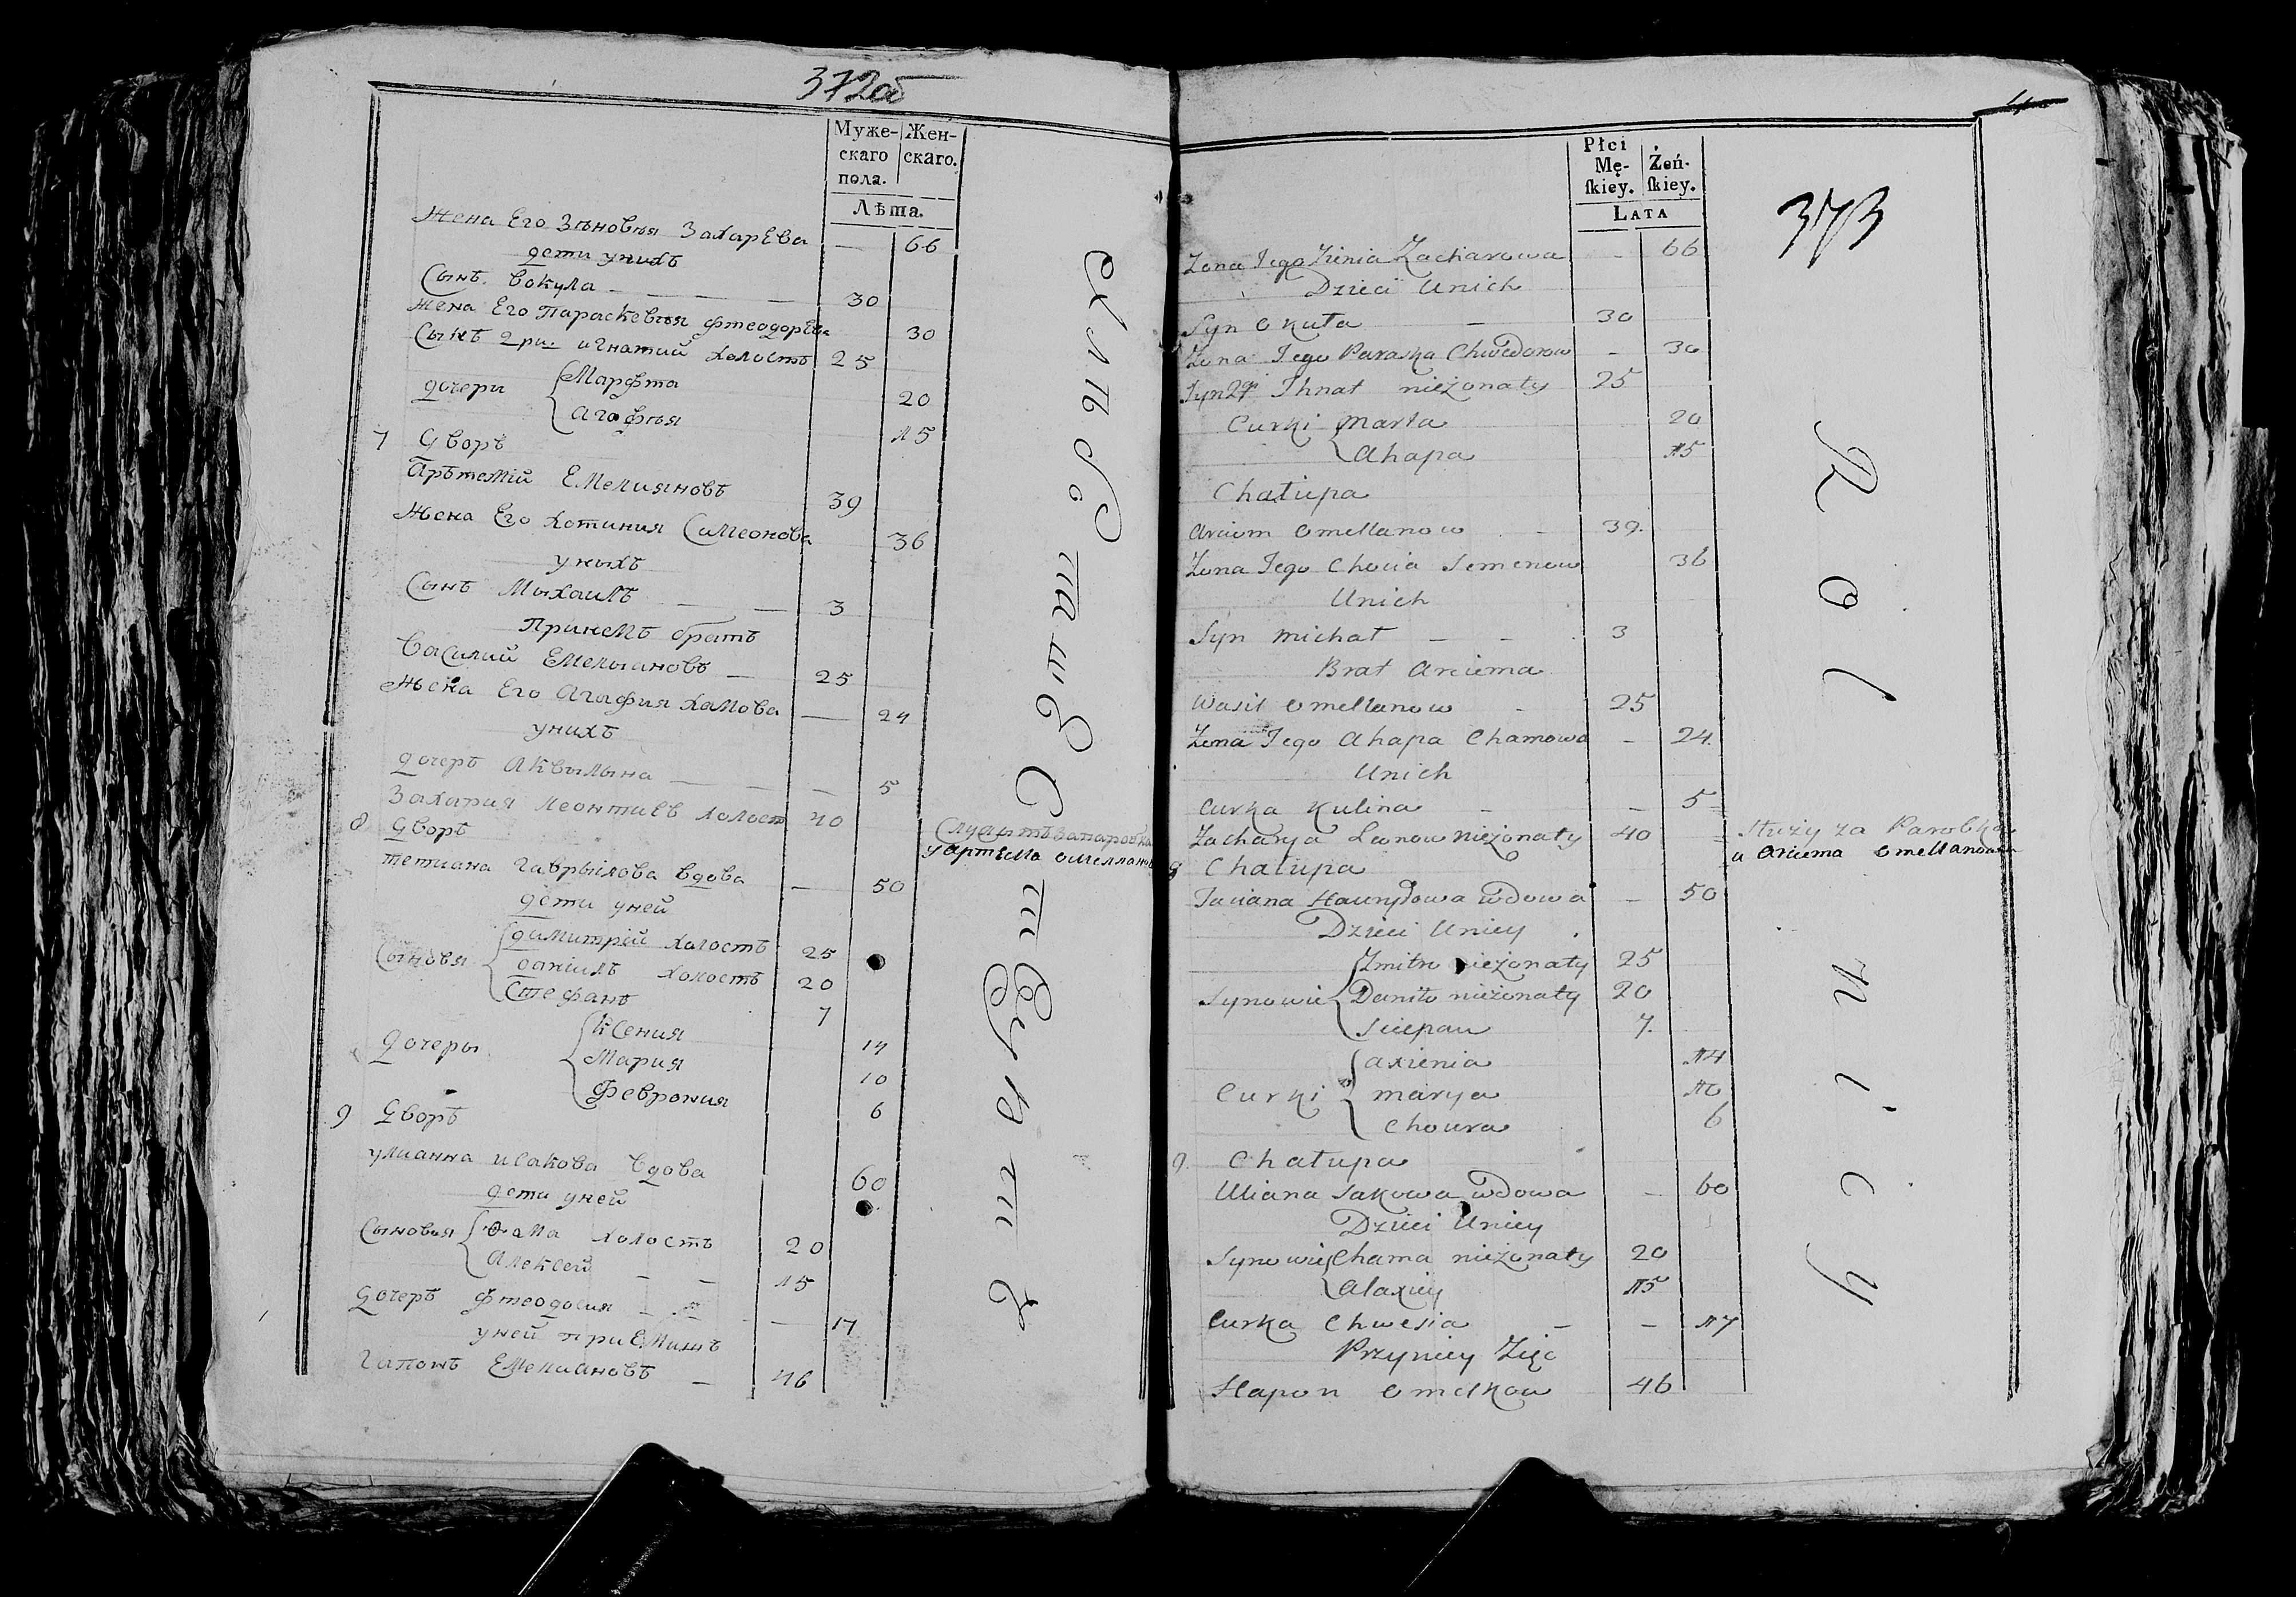 372об
Муже-
скаго
пола.
Жен-
скаго.
Лѣта.
Жена Его Зѣновѣя Захарева — 66
дети унихъ
Сынъ Вокула — 30
Жена Его Параскевѣя Фтеодорова 30
Сынъ 2ри игнатий холостъ 25
дочери Марфта 20
Агафѣя 15
7 Дворъ
Арътемій Емелияновъ 39
Жена Его Хотиния Симеонова 36
унихъ
Сынъ Михаилъ — — 3
Принемъ братъ
Василий Емелияновъ — 25
Жена Его Агафия Хамова — 24
унихъ
дочеръ Аквылына — — — 5
Захария Леонтиевъ холостъ 40
Служитъ запаробка
у Артема Омелланова
8 Дворъ
тетиана Гаврылова вдова — 50
дети уней
Сыновя димитрей холостъ 25
даніилъ холостъ 20
Стефанъ 7
дочеры Ксения 14
Мария 10
Феврония 6
9 Дворъ
улианна исакова вдова 60
дети уней
Сыновья Фама холостъ 20
Алексей — — 15
дочеръ Фтеодосия — — 17
уней приЕмишъ
Гапонъ Емелиановъ — 46
4
373
Płci
Mę-
ſkiey.
Żeń-
ſkiey.
LATA
Zona Jego Zienia Zacharowa - 66
Dzieci Unich
Syn Okuła — 30
Zona Jego Paraska Chwedorow - 30
Syn 2gi Ihnat nieżonaty 25
Curki Marta 20
Ahapa 15
Chałupa
Arciom Omellanow - 39.
Zona Jego Chocia Semenow 36
Unich
Syn Michał — - 3
Brat Arciema
Wasil Omellanow - 25
Zona Jego Ahapa Chamowa - 24.
Unich
Curka Kulina - — 5
Zacharya Leonow nieżonaty 40
Służy za Parobka
u Arciema Omellanowa
8 Chałupa
Taciana Hauryłowa Wdowa - 50
Dzieci Uniey
Synowie Zmitr nieżonaty 25
Daniło nieżonaty 20
Sciepan 7.
Curki Axienia 14
Marya 10
Choura 6
9. Chałupa
Uliana Jakowa wdowa - 60
Dzieci Uniey
Synowie Chama nieżonaty 20
Alaxiey 15
Curka Chwesia — - 17
Przyniey Zięć
Hapon Omelkow 46
R o l n i c y